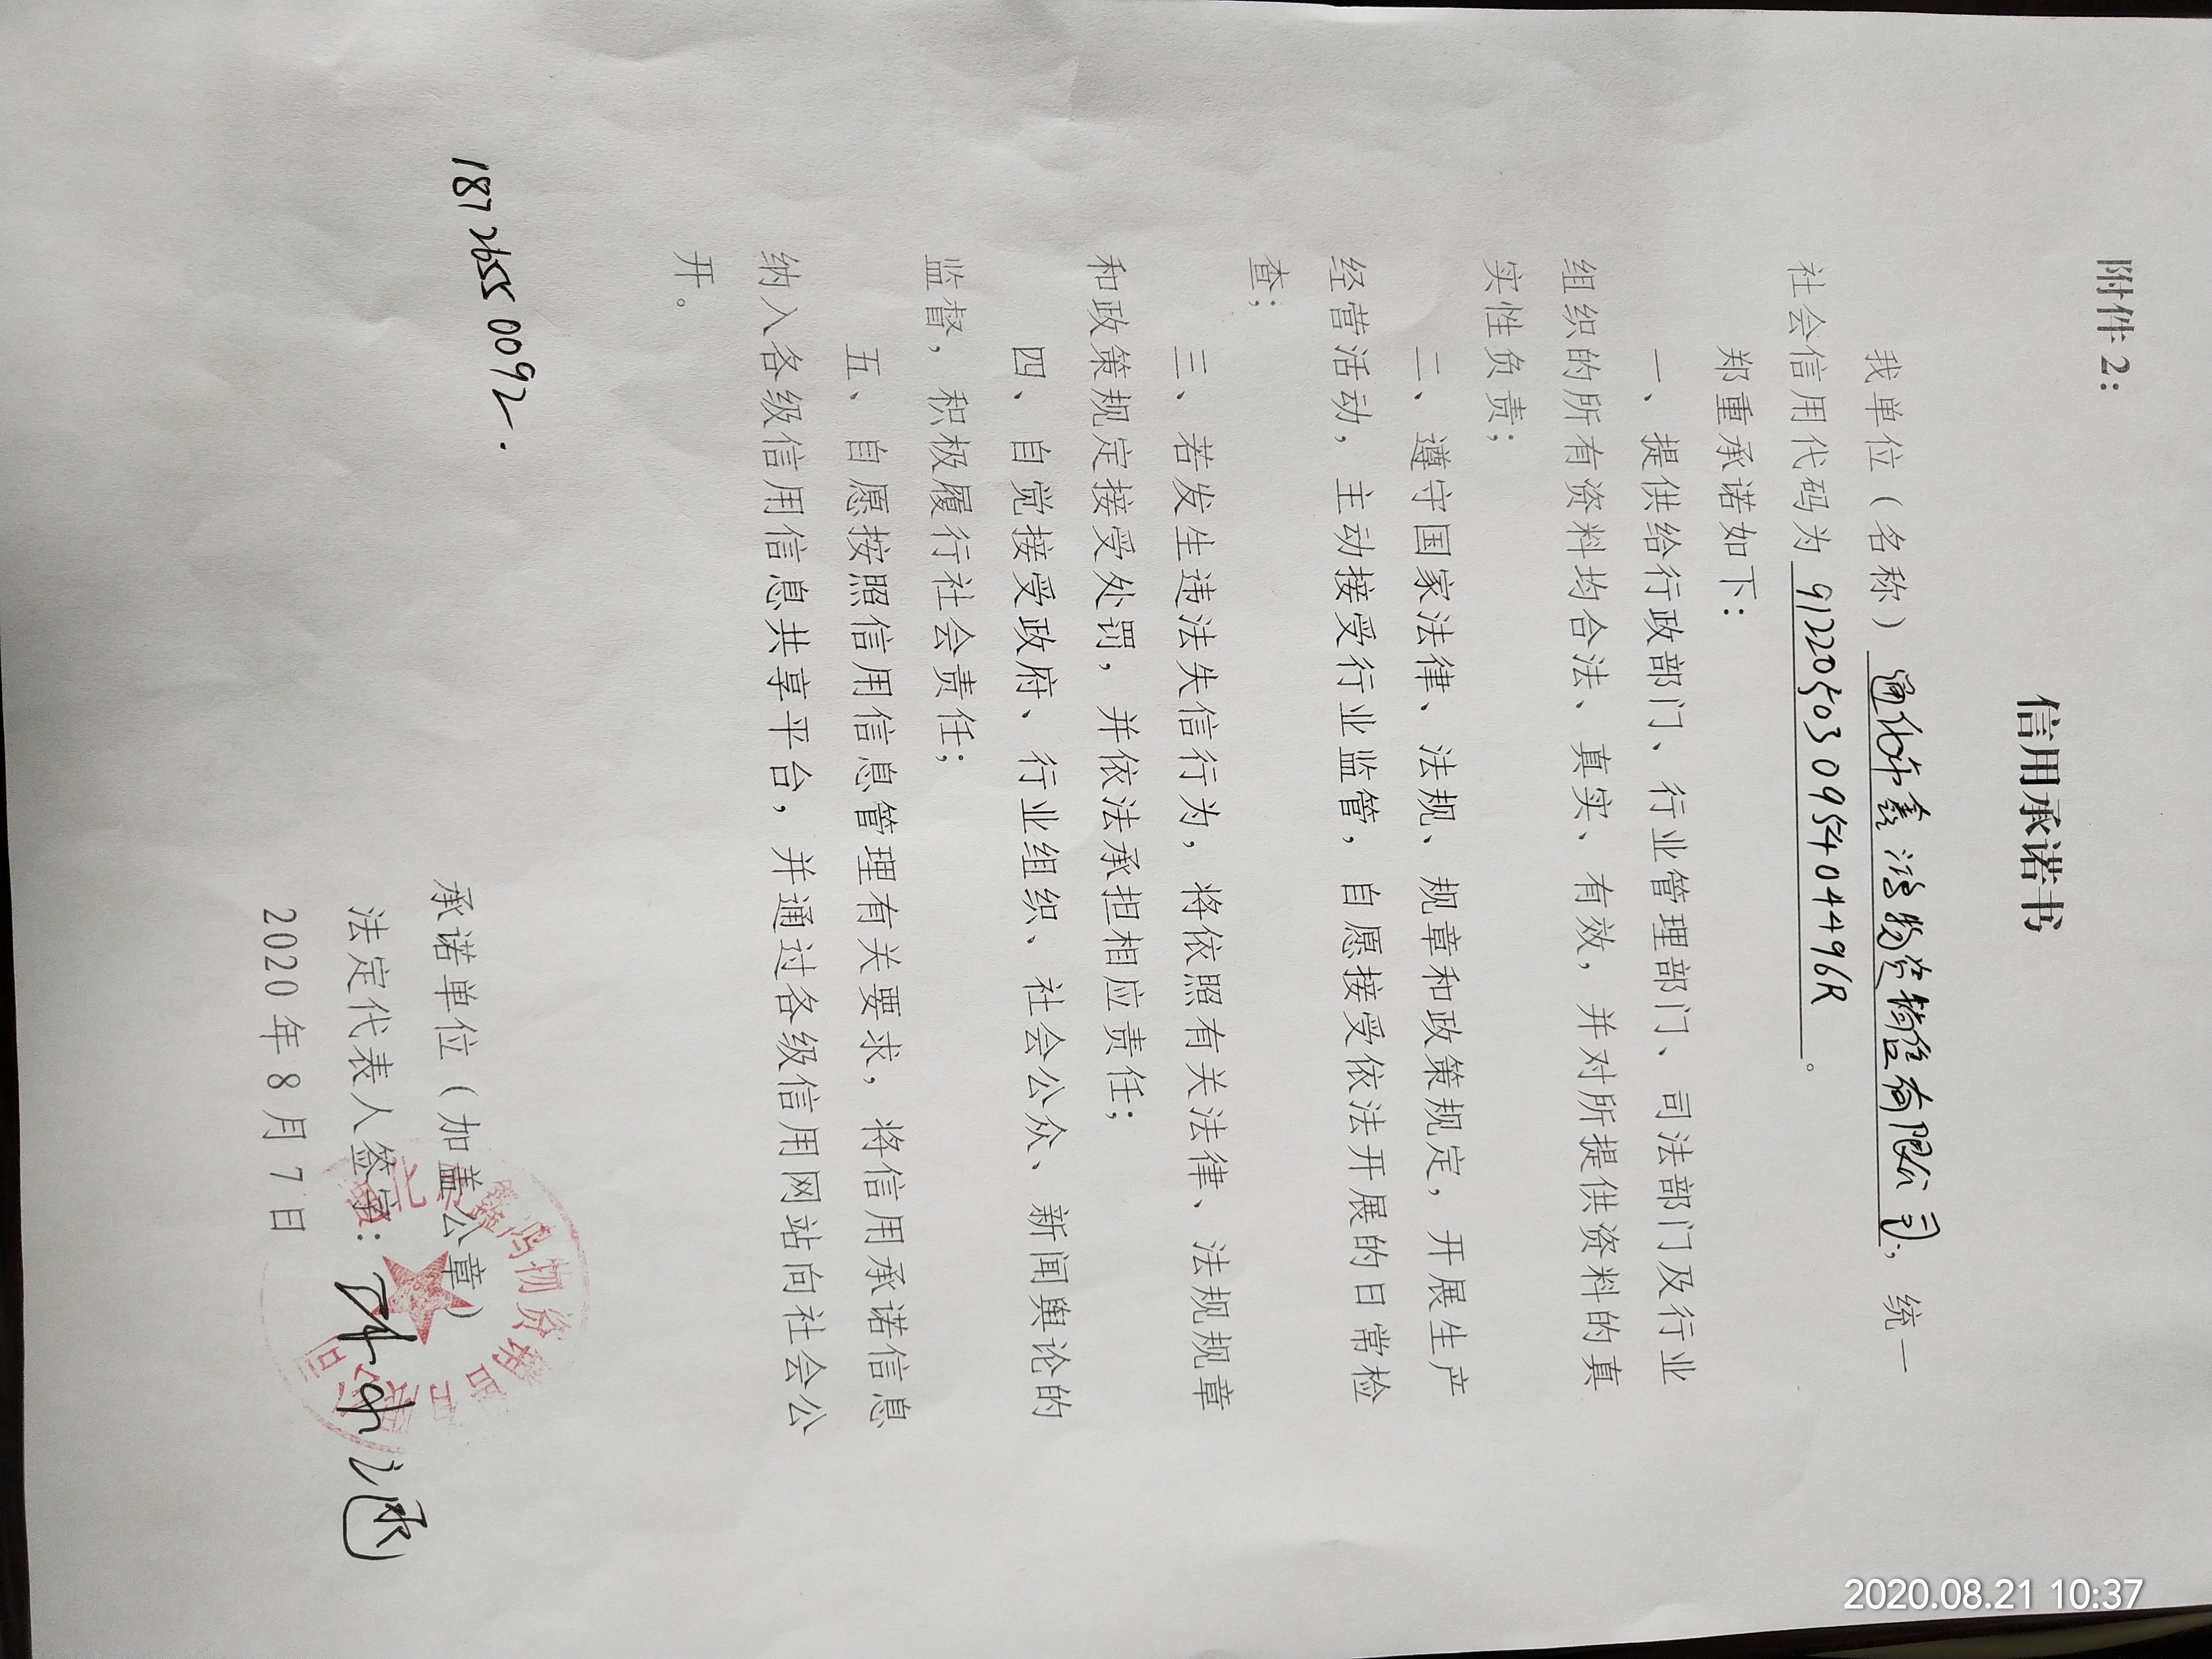 附件 2：
信用承诺书
我单位（名称）通化市鑫鸿物资销售有限公司，统一
社会信用代码为 91220503095404496R 。
郑重承诺如下：
一、提供给行政部门、行业管理部门、司法部门及行业
组织的所有资料均合法、真实、有效，并对所提供资料的真
实性负责；
二、遵守国家法律、法规、规章和政策规定，开展生产
经营活动，主动接受行业监管，自愿接受依法开展的日常检
查；
三、若发生违法失信行为，将依照有关法律、法规规章
和政策规定接受处罚，并依法承担相应责任；
四、自觉接受政府、行业组织、社会公众、新闻舆论的
监督，积极履行社会责任；
五、自愿按照信用信息管理有关要求，将信用承诺信息
纳入各级信用信息共享平台，并通过各级信用网站向社会公
开。
187 2655 0092.
承诺单位（加盖公章）
法定代表人签字：
2020 年 8 月 7 日
2020.08.21 10:37